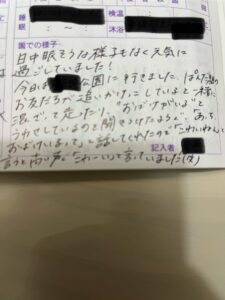 睡眠 ～ ～ 検温 沐浴
園での様子
日中眠そうな様子もなく元気に
過ごしていました!
今日は 公園に行きました。ぱんだ組の
お友だちが追いかけっこしていると一緒に
混ざって走ったり、"おばけがいる"と
うわさしているのを聞きつけたようで、あっち
おばけいるって」と話してくれたので「こわいわね」と
言うと高い声で「こわーい」と言っていました(笑)
記入者